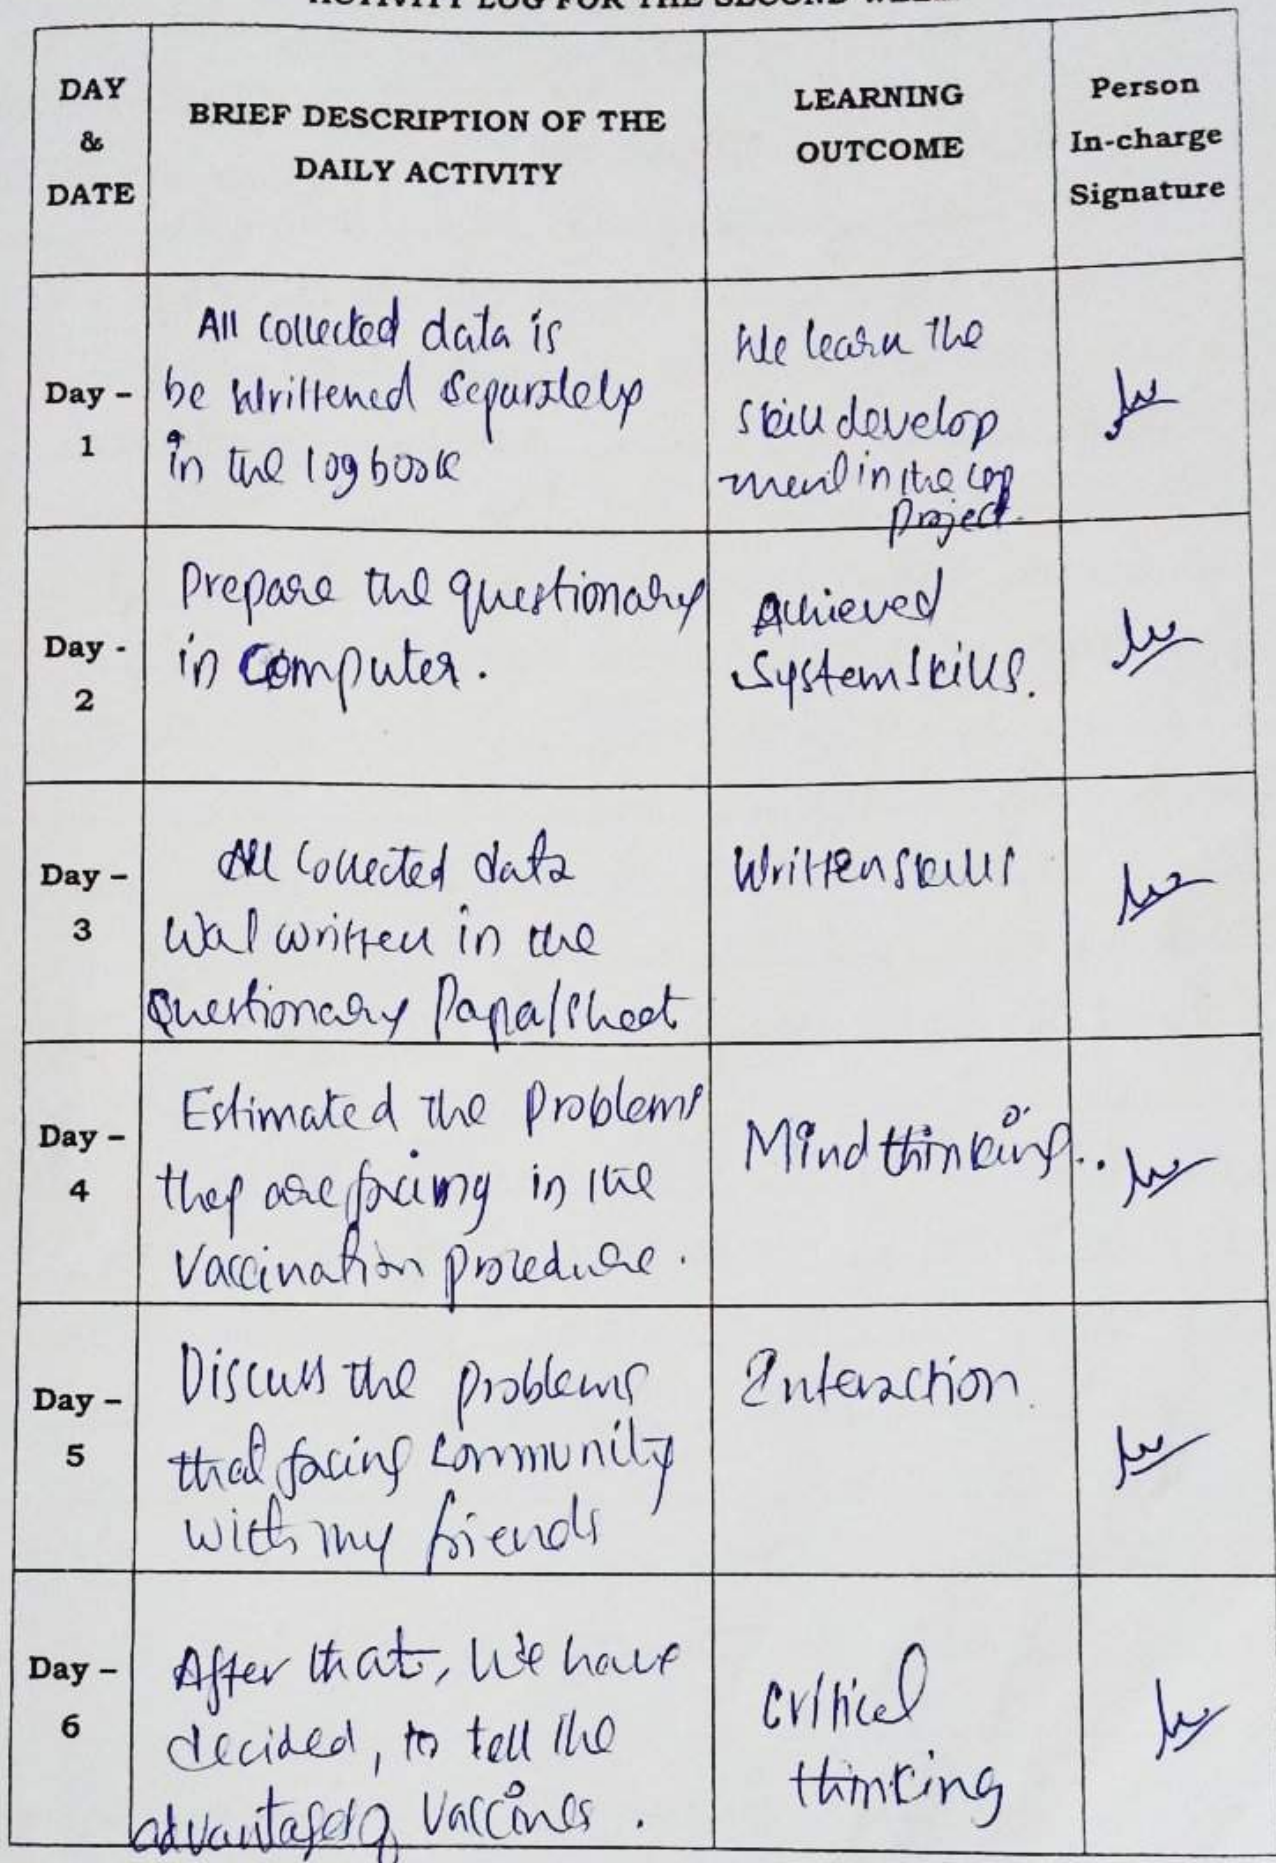 ACTIVITY LOG FOR THE SECOND WEEK
DAY
&
DATE
BRIEF DESCRIPTION OF THE
DAILY ACTIVITY
LEARNING
OUTCOME
Person
In-charge
Signature
Day –
1
All collected data is
be writtened separately
in the logbook
We learn the
skill develop
ment in the
Project.
Day -
2
Prepare the questionary
in Computer.
Achieved
System skills.
Day –
3
All Collected data
Was written in the
Questionary Papa/sheet
Written skills
Day –
4
Estimated the Problems
they are facing in the
Vaccination procedure.
Mind thinking..
Day –
5
Discuss the problems
that facing community
with my friends
Interaction
Day –
6
After that, We have
decided, to tell the
advantages of Vaccines.
Critical
thinking